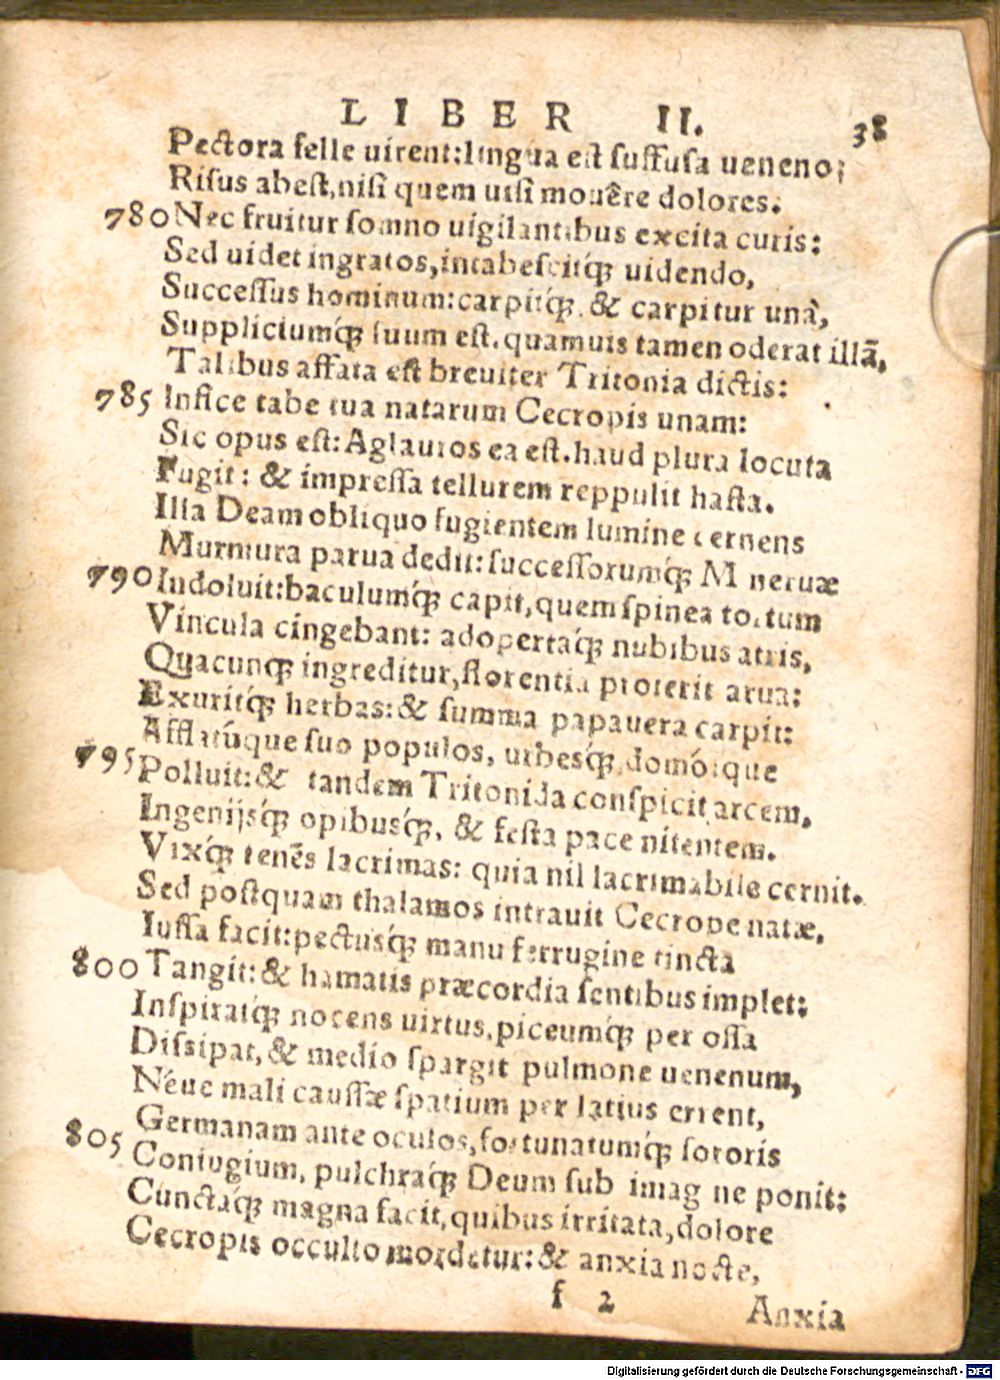 LIBER II. 38
Pectora felle uirent: lingua est suffusa ueneno;
Risus abest, nisi quem uisi mouêre dolores.
780 Nec fruitur somno uigilantibus excita curis:
Sed uidet ingratos, intabescitq́; uidendo,
Successus hominum: carpitq́; & carpitur unà,
Suppliciumq́; suum est. quamuis tamen oderat illā,
Talibus affata est breuiter Tritonia dictis:
785 Infice tabe tua natarum Cecropis unam:
Sic opus est: Aglauros ea est. haud plura locuta
Fugit: & impressa tellurem reppulit hasta.
Illa Deam obliquo fugientem lumine cernens
Murmura parua dedit: successorumq́; Mineruæ
790 Indoluit: baculumq́; capit, quem spinea tortum
Vincula cingebant: adopertaq́; nubibus atris,
Quacunq; ingreditur, florentia proterit arua:
Exuritq́; herbas: & summa papauera carpit:
Afflatúque suo populos, urbesq́; domósque
795 Polluit: & tandem Tritonida conspicit arcem,
Ingenijsq́; opibusq́;, & festa pace nitentem.
Vixq́; tenēs lacrimas: quia nil lacrimabile cernit.
Sed postquam thalamos intrauit Cecrope natæ,
Iussa facit: pectusq́; manu ferrugine tincta
800 Tangit: & hamatis præcordia sentibus implet:
Inspiratq́; nocens uirtus, piceumq́; per ossa
Dissipat, & medio spargit pulmone uenenum,
Néue mali caussæ spatium per latius errent,
Germanam ante oculos, fortunatumq́; sororis
805 Coniugium, pulchraq́; Deum sub imagine ponit:
Cunctaq́; magna facit, quibus irritata, dolore
Cecropis occulto mordetur: & anxia nocte,
f 2 Anxia
Digitalisierung gefördert durch die Deutsche Forschungsgemeinschaft - DFG